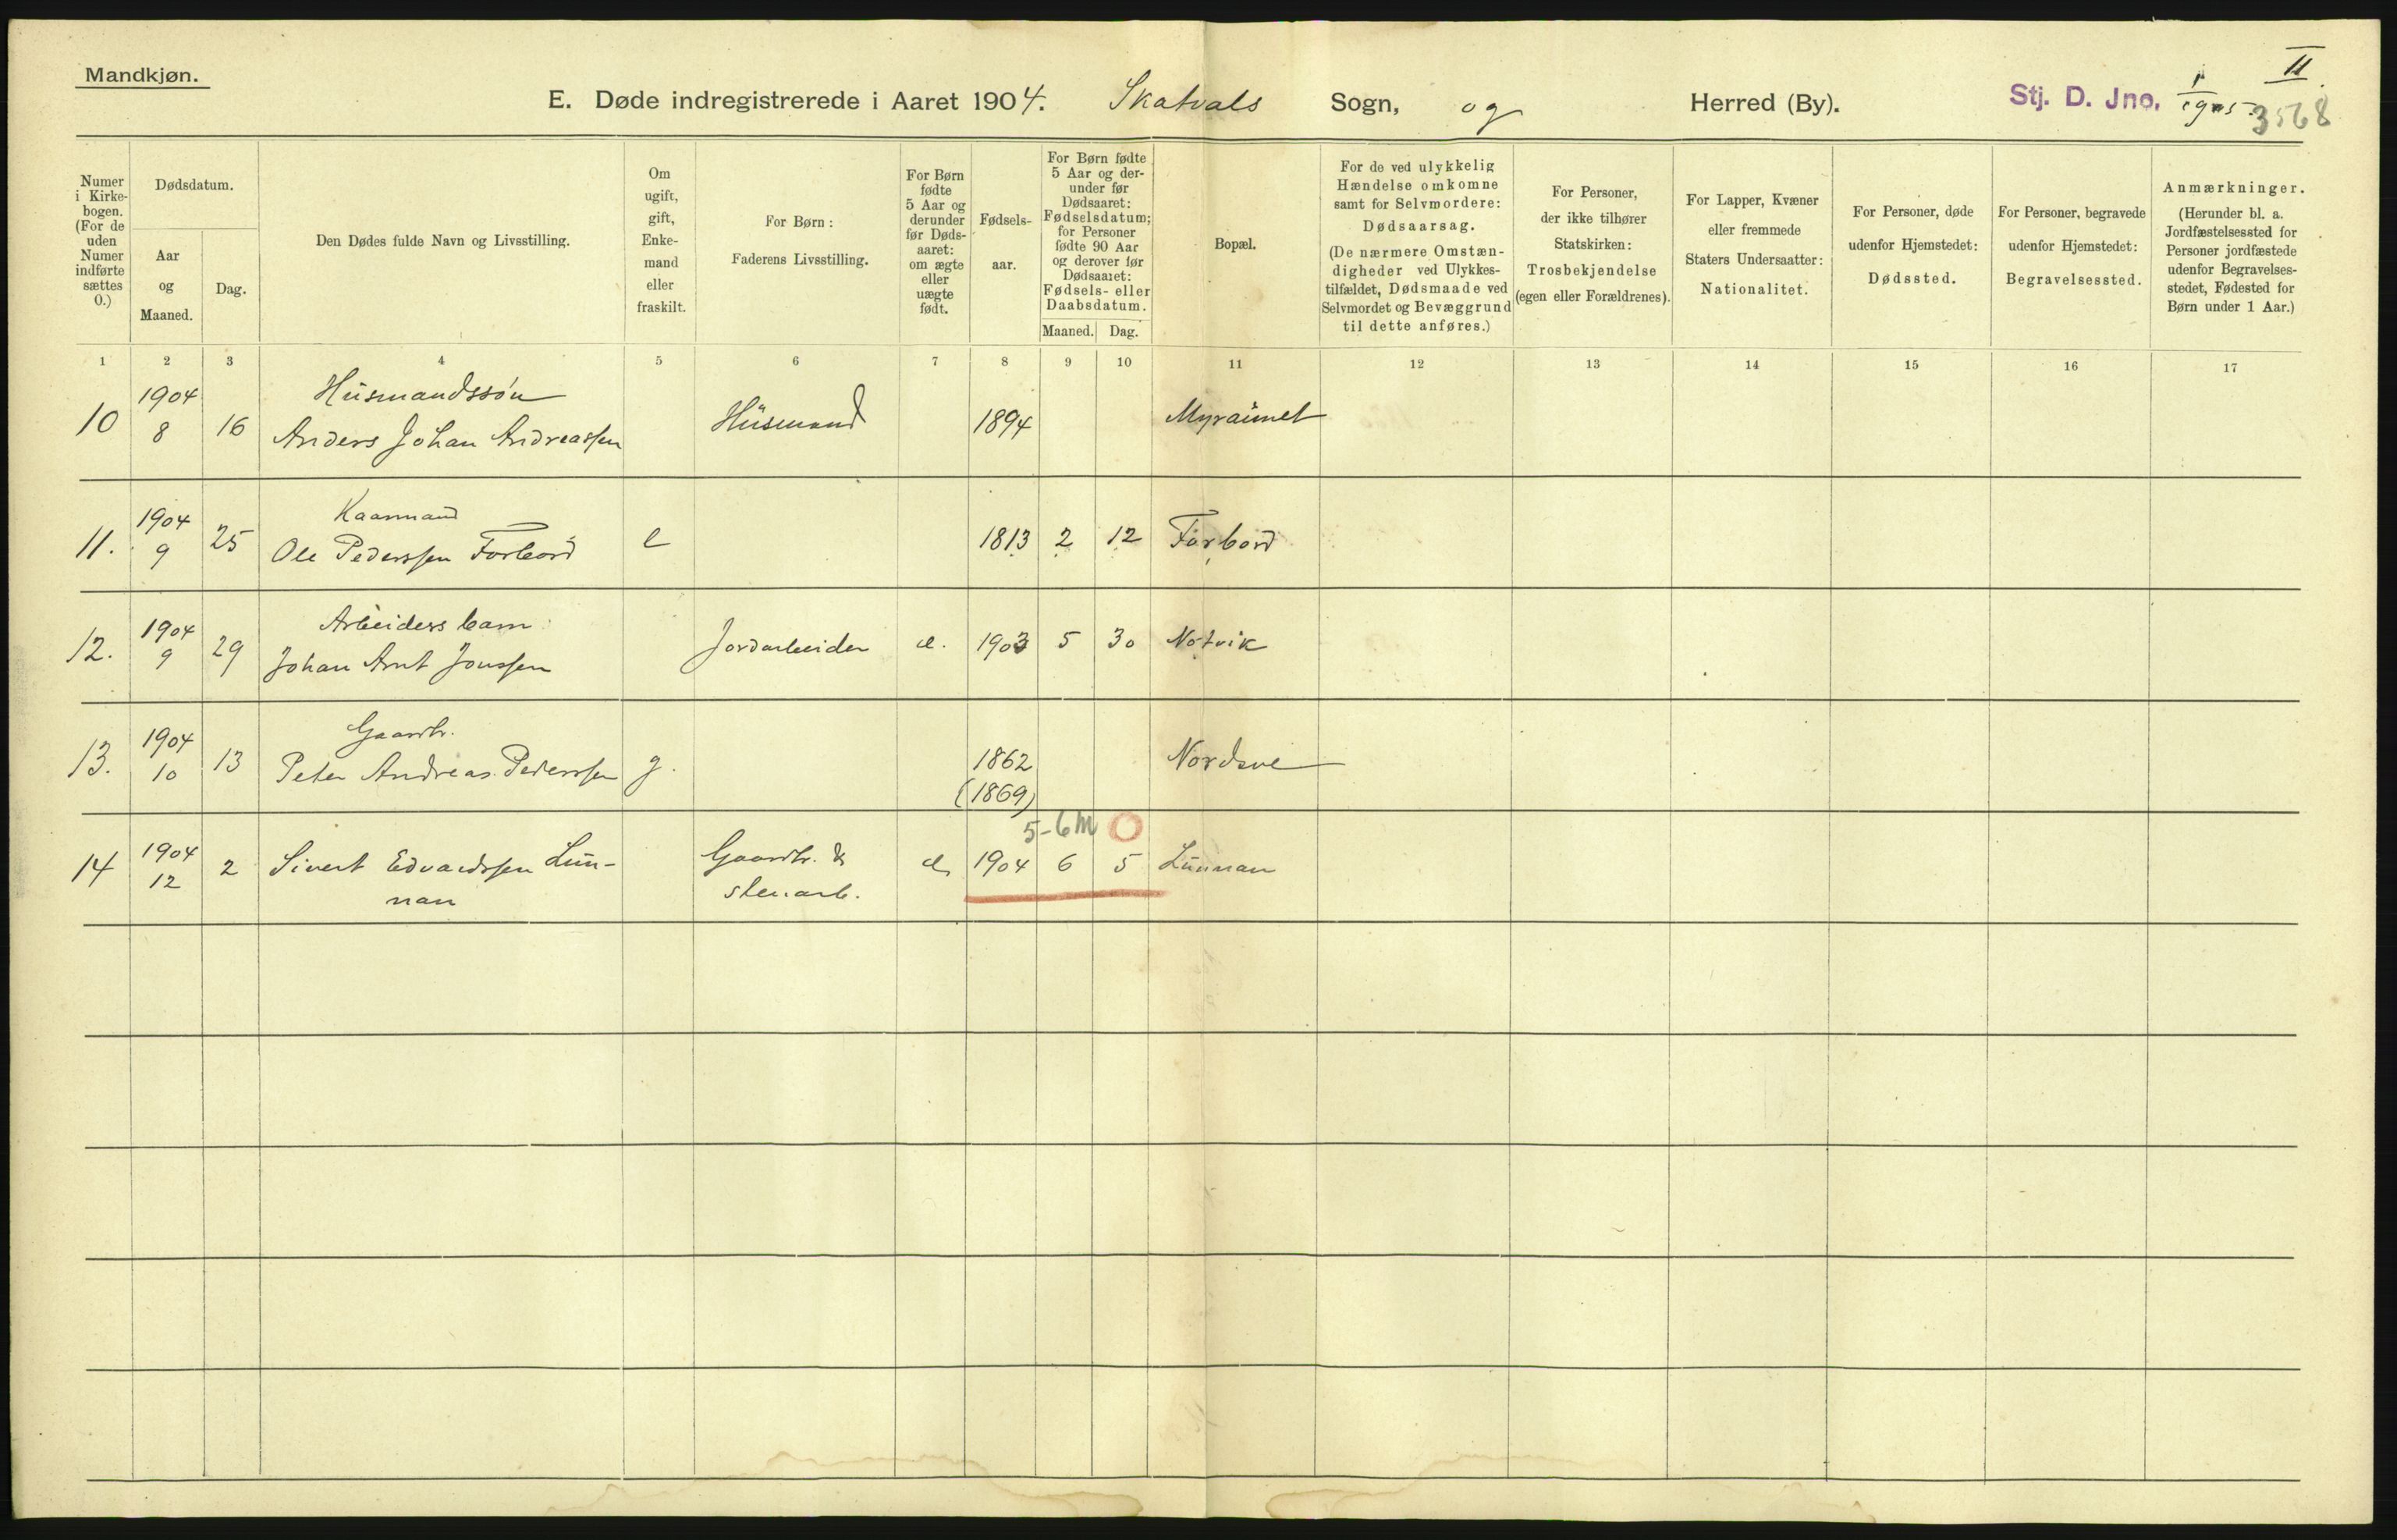 Mandkjøn.
II
E. Døde indregistrerede i Aaret 1904. Skatvals Sogn, og Herred (By). Stj. D. Jno. 1/1905 3568
Numer i Kirkebogen. (For de uden Numer indførte sættes 0.)
Dødsdatum.
Aar og Maaned.
Dag.
Den Dødes fulde Navn og Livsstilling.
Om ugift, gift, Enkemand eller fraskilt.
For Børn: Faderens Livsstilling.
For Børn fødte 5 Aar og derunder før Dødsaaret: om ægte eller uægte født.
Fødselsaar.
For Børn fødte 5 Aar og derunder før Dødsaaret: Fødselsdatum; for Personer fødte 90 Aar og derover før Dødsaaret: Fødsels- eller Daabsdatum.
Maaned. Dag.
Bopæl.
For de ved ulykkelig Hændelse omkomne samt for Selvmordere: Dødsaarsag. (De nærmere Omstændigheder ved Ulykkestilfældet, Dødsmaade ved Selvmordet og Bevæggrund til dette anføres.)
For Personer, der ikke tilhører Statskirken: Trosbekjendelse (egen eller Forældrenes).
For Lapper, Kvæner eller fremmede Staters Undersaatter: Nationalitet.
For Personer, døde udenfor Hjemstedet: Dødssted.
For Personer, begravede udenfor Hjemstedet: Begravelsessted.
Anmærkninger. (Herunder bl. a. Jordfæstelsessted for Personer jordfæstede udenfor Begravelsesstedet, Fødested for Børn under 1 Aar.)
1 2 3 4 5 6 7 8 9 10 11 12 13 14 15 16 17
1904 Husmandssøn
10 8 16 Anders Johan Andreassen Husmand 1894 Myraunet
1904 Kaarmand
11. 9 25 Ole Pederssen Forbord e 1813 2 12 Forbord
1904 Arbeiders barn
12. 9 29 Johan Arnt Jonssen Jordarbeider e. 1903 5 30 Notvik
1904 Gaardbr.
13. 10 13 Peter Andreas Pederssen g. 1862 Nordsve
(1869)
5-6 M
1904
14 12 2 Sivert Edvardssen Lun- Gaardbr. & e 1904 6 5 Lunnan
nan stenarb.